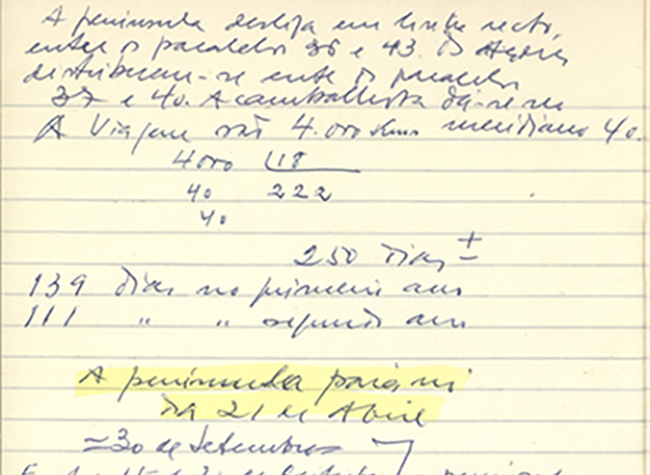 A península desliza em linha recta,
entre os paralelos 36 e 43. Os Açores
distribuem-se entre os paralelos
37 e 40. A cambalhota dá-se no
A Viagem são 4.000 kms meridiano 40.
4000 18
40 222
40
250 dias ±
139 dias no primeiro ano
111 " " segundo ano
A península
dia 21 de Abril
=30 de Setembro=